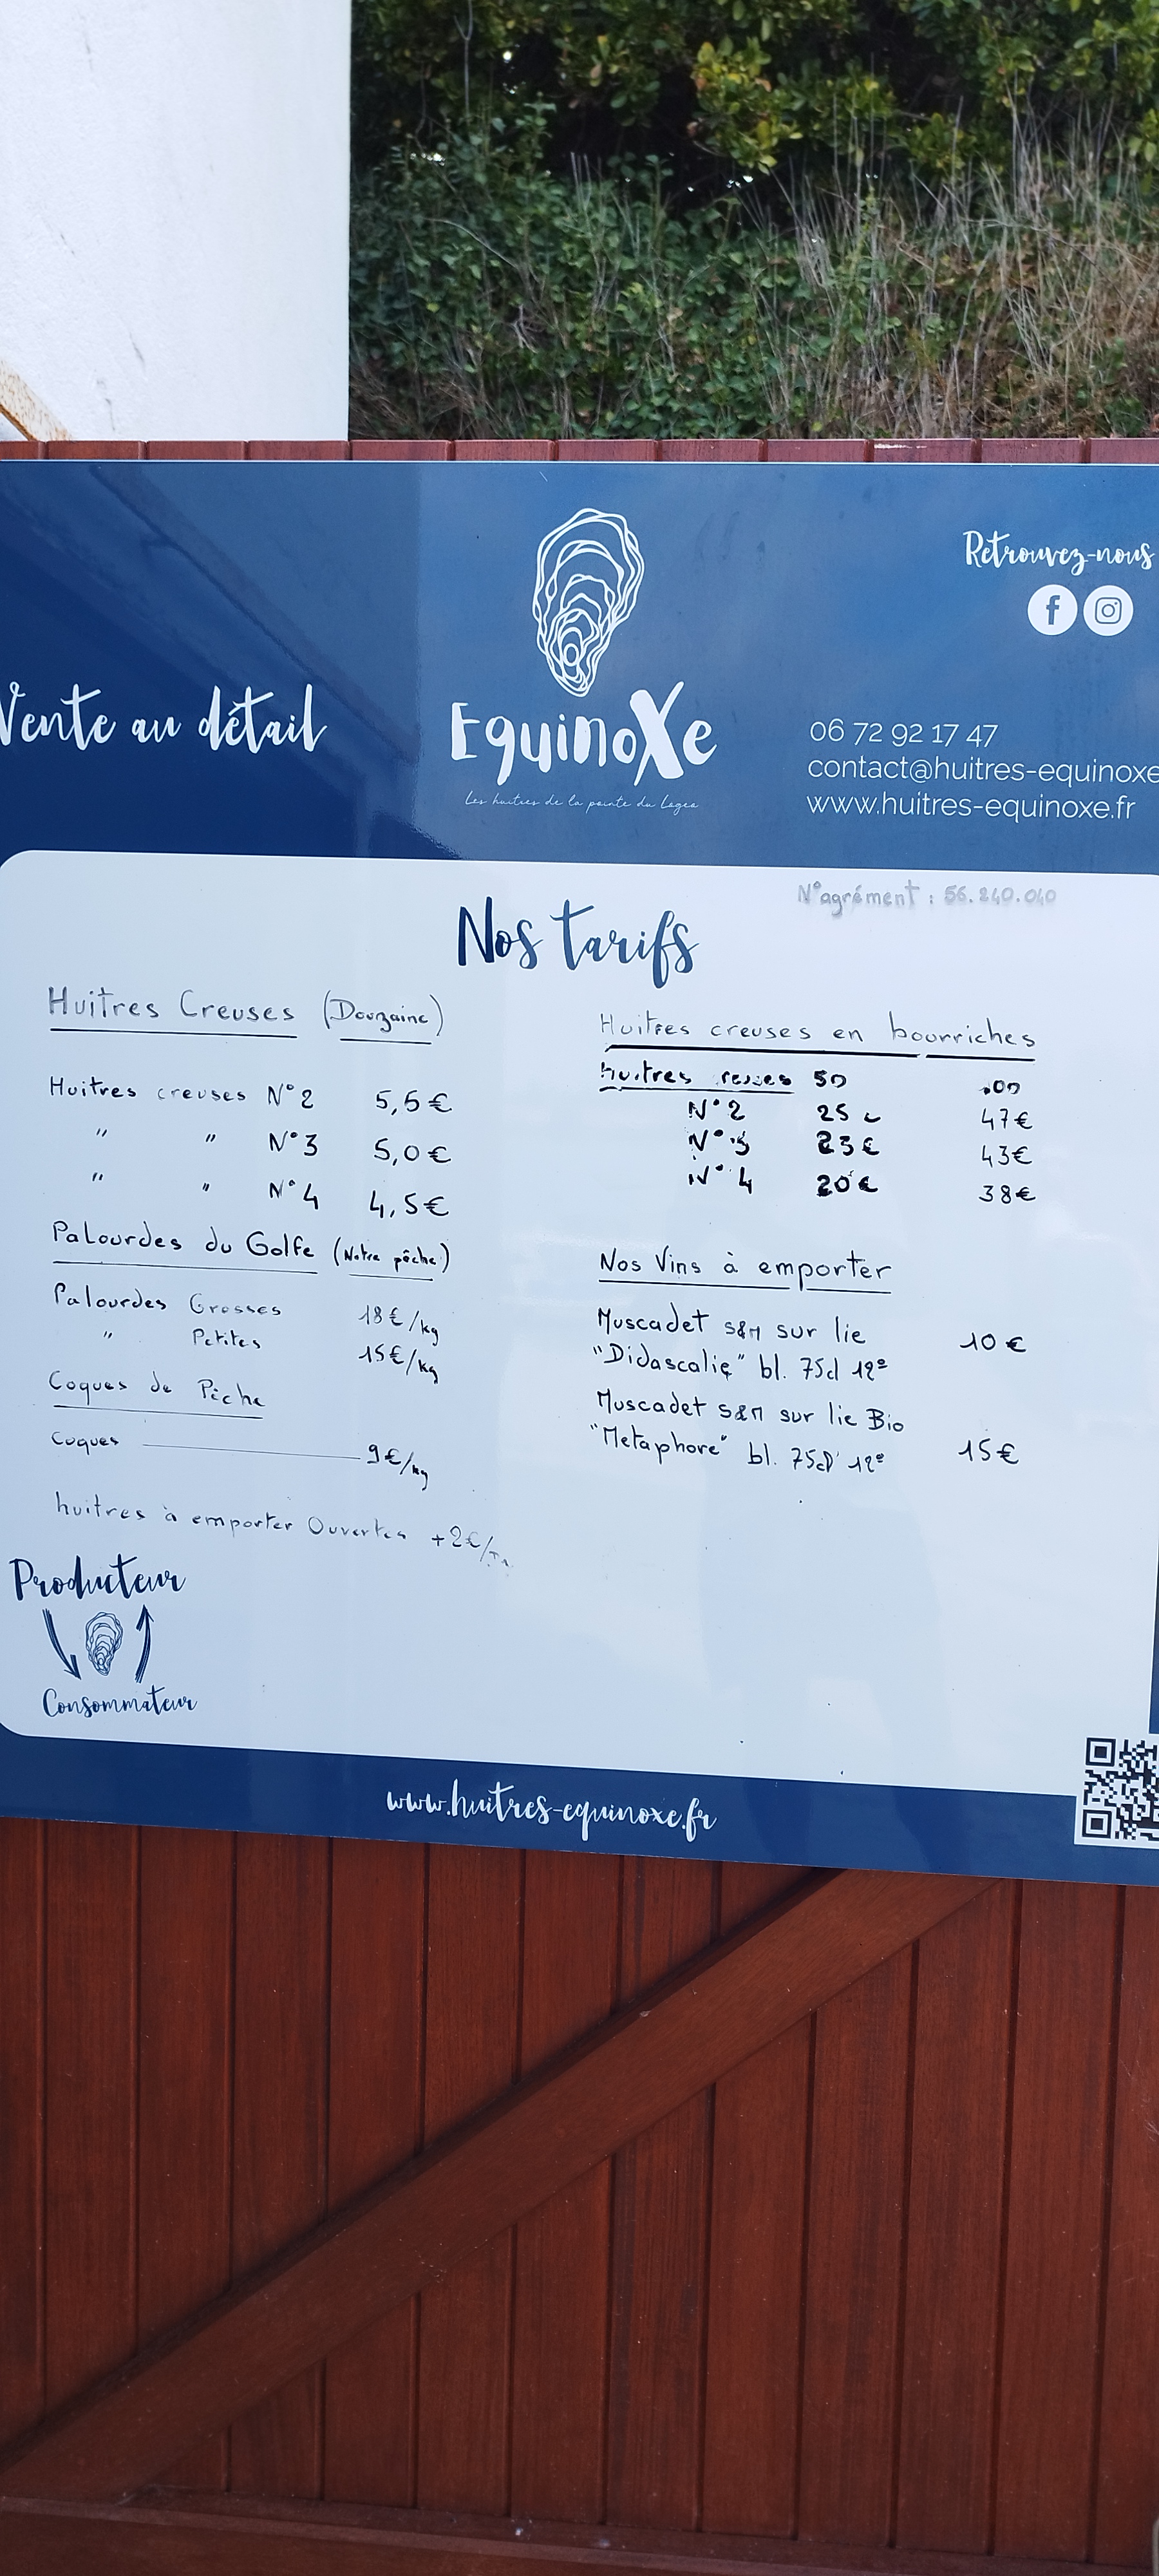 Retrouvez-nous
Vente au détail
EquinoXe
Les huîtres de la pointe du Logeo
06 72 92 17 47
contact@huitres-equinoxe
www.huitres-equinoxe.fr
N°agrément : 56.240.040
Nos tarifs
Huitres Creuses (Douzaine)
Huitres creuses N°2 5,5€
" " N°3 5,0€
" " N°4 4,5€
Palourdes du Golfe (Notre pêche)
Palourdes Grosses 18€/kg
" Petites 15€/kg
Coques de Pêche
Coques 9€/kg
huitres à emporter Ouvertes +2€/
Huitres creuses en bourriches
Huitres 50 .00
N°2 25 47€
N°3 23€ 43€
N°4 20€ 38€
Nos Vins à emporter
Muscadet S&M sur lie
"Didascalie" bl. 75cl 12° 10€
Muscadet S&M sur lie Bio
"Metaphore" bl. 75cl 12° 15€
Producteur
Consommateur
www.huitres-equinoxe.fr